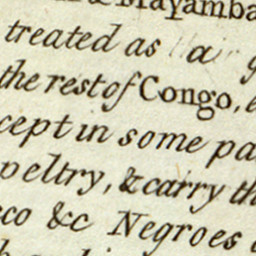 & Mayamba
treated as a
the rest of Congo,
cept in some pa
peltry, & carry th
co &c Negroes